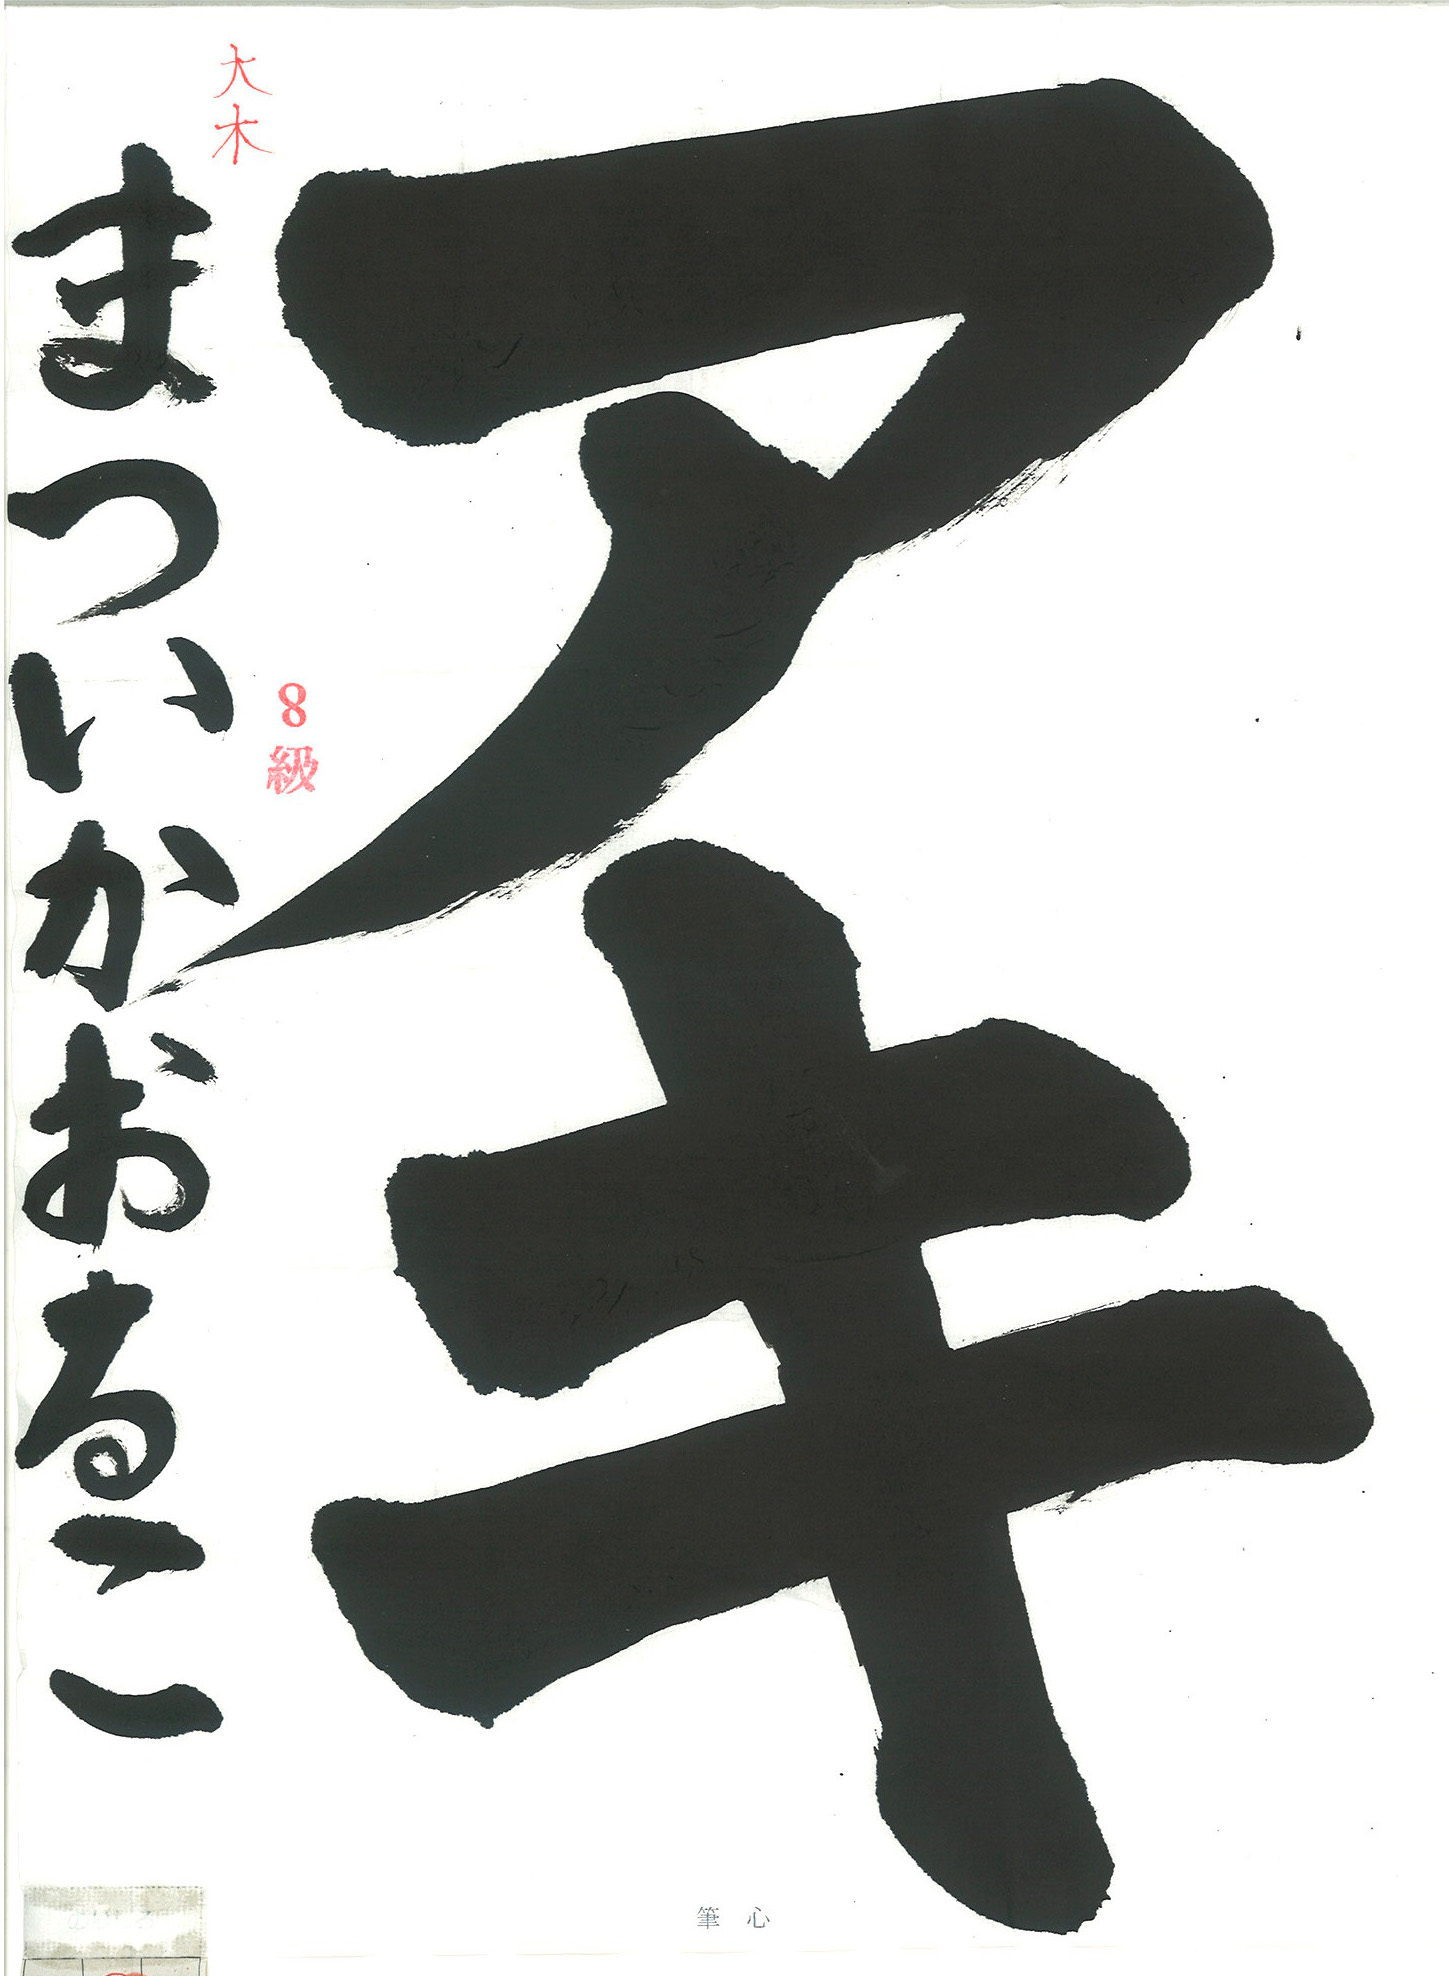 アキ
大木
8級
まついかおるこ
筆心